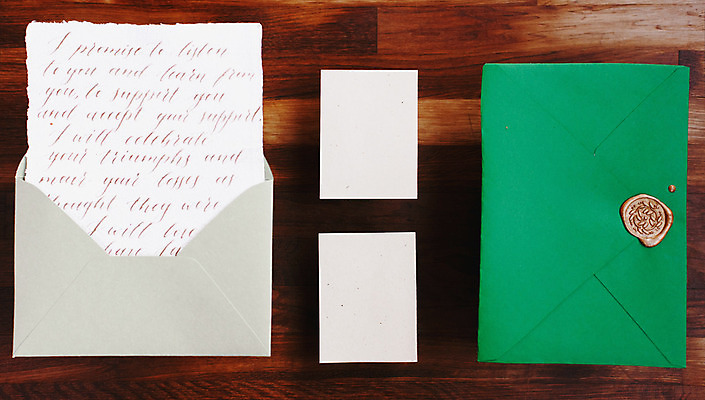 I promise to listen
to you and learn from
you, to support you
and accept your support.
I will celebrate
your triumphs and
mour your losses as
thought they were
I will love